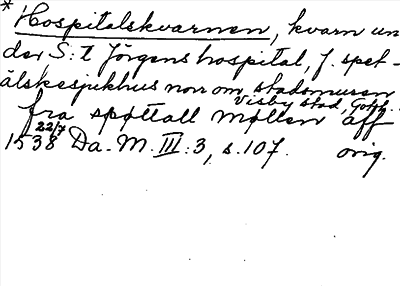 * Hospitalskvarnen, kvarn un
der S:t Jörgens hospital, f. spet-
älskesjukhus norr om stadsmuren
Visby stad, Gotl.
fra spøttall Møllen aff
22/7
1538 Da. M. III:3, s. 107. orig.